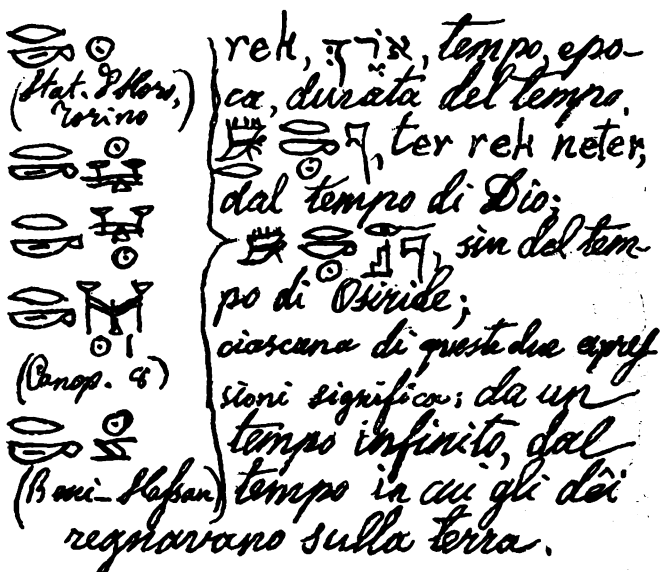 𓂋𓎡𓇳
(Stat. d'Horo,
Torino)
𓂋𓎡𓇳
𓂋𓎡𓇳
𓂋𓎡𓇳𓏤
(Canop. 8)
𓂋𓎡𓇳
(Beni-Hassan)
rek, אֹרֶךְ, tempo, epo-
ca, durata del tempo.
𓂋𓎡𓇳𓊹, ter rek neter,
dal tempo di Dio;
𓂋𓎡𓇳𓊹, sin dal tem-
po di Osiride;
ciascuna di queste due espres
sioni significa: da un
tempo infinito, dal
tempo in cui gli dêi
regnavano sulla terra.